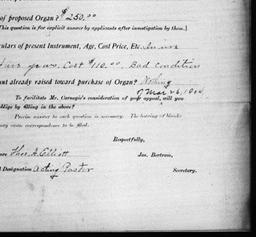 of proposed Organ? $250.00
(This question is for explicit answer by applicants after investigation by them.)
culars of present Instrument, Age, Cost Price, Etc. In use
years. Cost $110.00. Bad Condition
nt already raised toward purchase of Organ? Nothing
To facilitate Mr. Carnegie's consideration of your appeal, will you
oblige by filling in the above?
Precise answer to each question is necessary. The leaving of blanks
may cause correspondence to be filed.
Respectfully,
Jas. Bertram,
Thos. A. Elliott
Secretary.
l Designation Acting Pastor